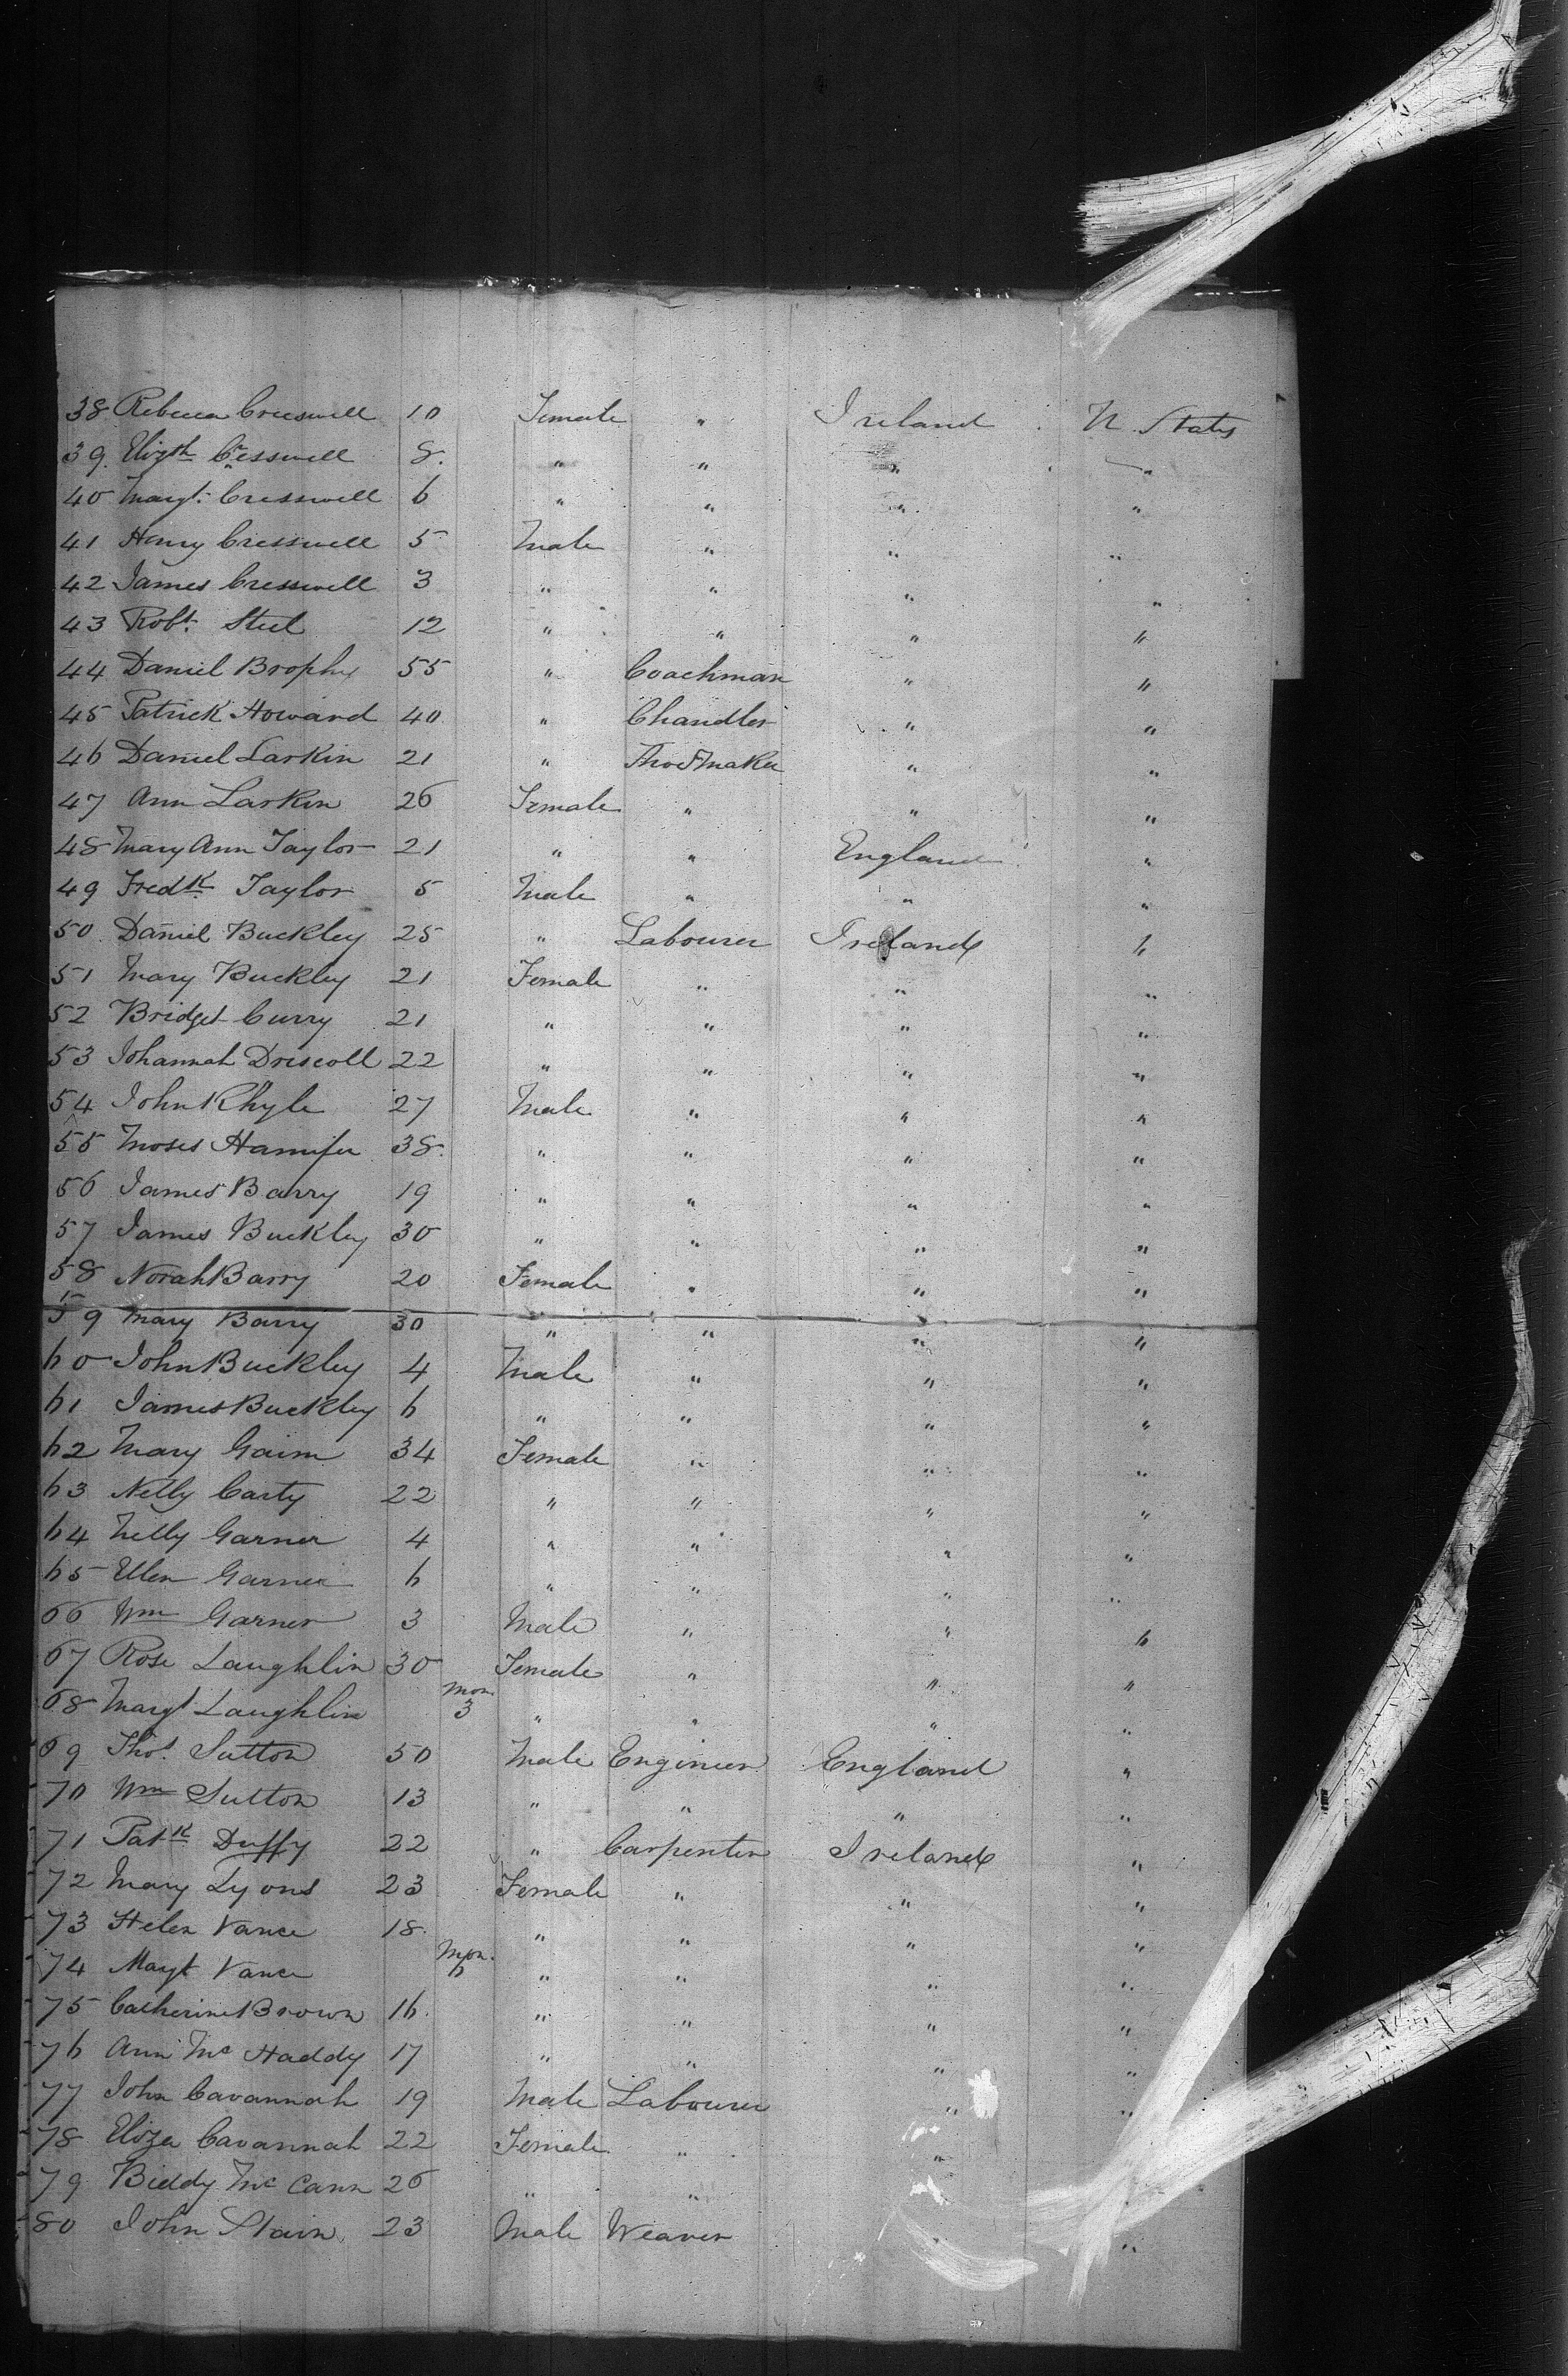 38 Rebecca Cresswell 10 Female " Ireland U. States
39 Elizth Cresswell 8 " " " "
40 Margt. Cresswell 6 " " " "
41 Henry Cresswell 5 Male " " "
42 James Cresswell 3 " " " "
43 Robt. Steel 12 " " " "
44 Daniel Brophy 55 " Coachman " "
45 Patrick Howard 40 " Chandler " "
46 Daniel Larkin 21 " Shoemaker " "
47 Ann Larkin 26 Female " " "
48 Mary Ann Taylor 21 " " England "
49 Fredk. Taylor 5 Male " " "
50 Daniel Buckley 25 " Labourer Ireland "
51 Mary Buckley 21 Female " " "
52 Bridget Curry 21 " " " "
53 Johannah Driscoll 22 " " " "
54 John Rhyle 27 Male " " "
55 Moses Hannifer 38 " " " "
56 James Barry 19 " " " "
57 James Buckley 30 " " " "
58 Norah Barry 20 Female " " "
59 Mary Barry 30 " " " "
60 John Buckley 4 Male " " "
61 James Buckley 6 " " " "
62 Mary Gaim 34 Female " " "
63 Nelly Carty 22 " " " "
64 Nelly Garner 4 " " " "
65 Ellen Garner 6 " " " "
66 Wm Garner 3 Male " " "
67 Rose Laughlin 30 Female " " "
68 Margt Laughlin Mon. 3 " " " "
69 Thos. Sutton 50 Male Engineer England "
70 Wm Sutton 13 " " " "
71 Patk. Duffy 22 " Carpenter Ireland "
72 Mary Lyons 23 Female " " "
73 Helen Vance 18 " " " "
74 Margt Vance Mon. 6 " " " "
75 Catherine Brown 16 " " " "
76 Ann Mc Haddy 17 " " " "
77 John Cavannah 19 Male Labourer " "
78 Eliza Cavannah 22 Female " " "
79 Biddy Mc Cann 26 " "
80 John Stain 23 Male Weaver " "